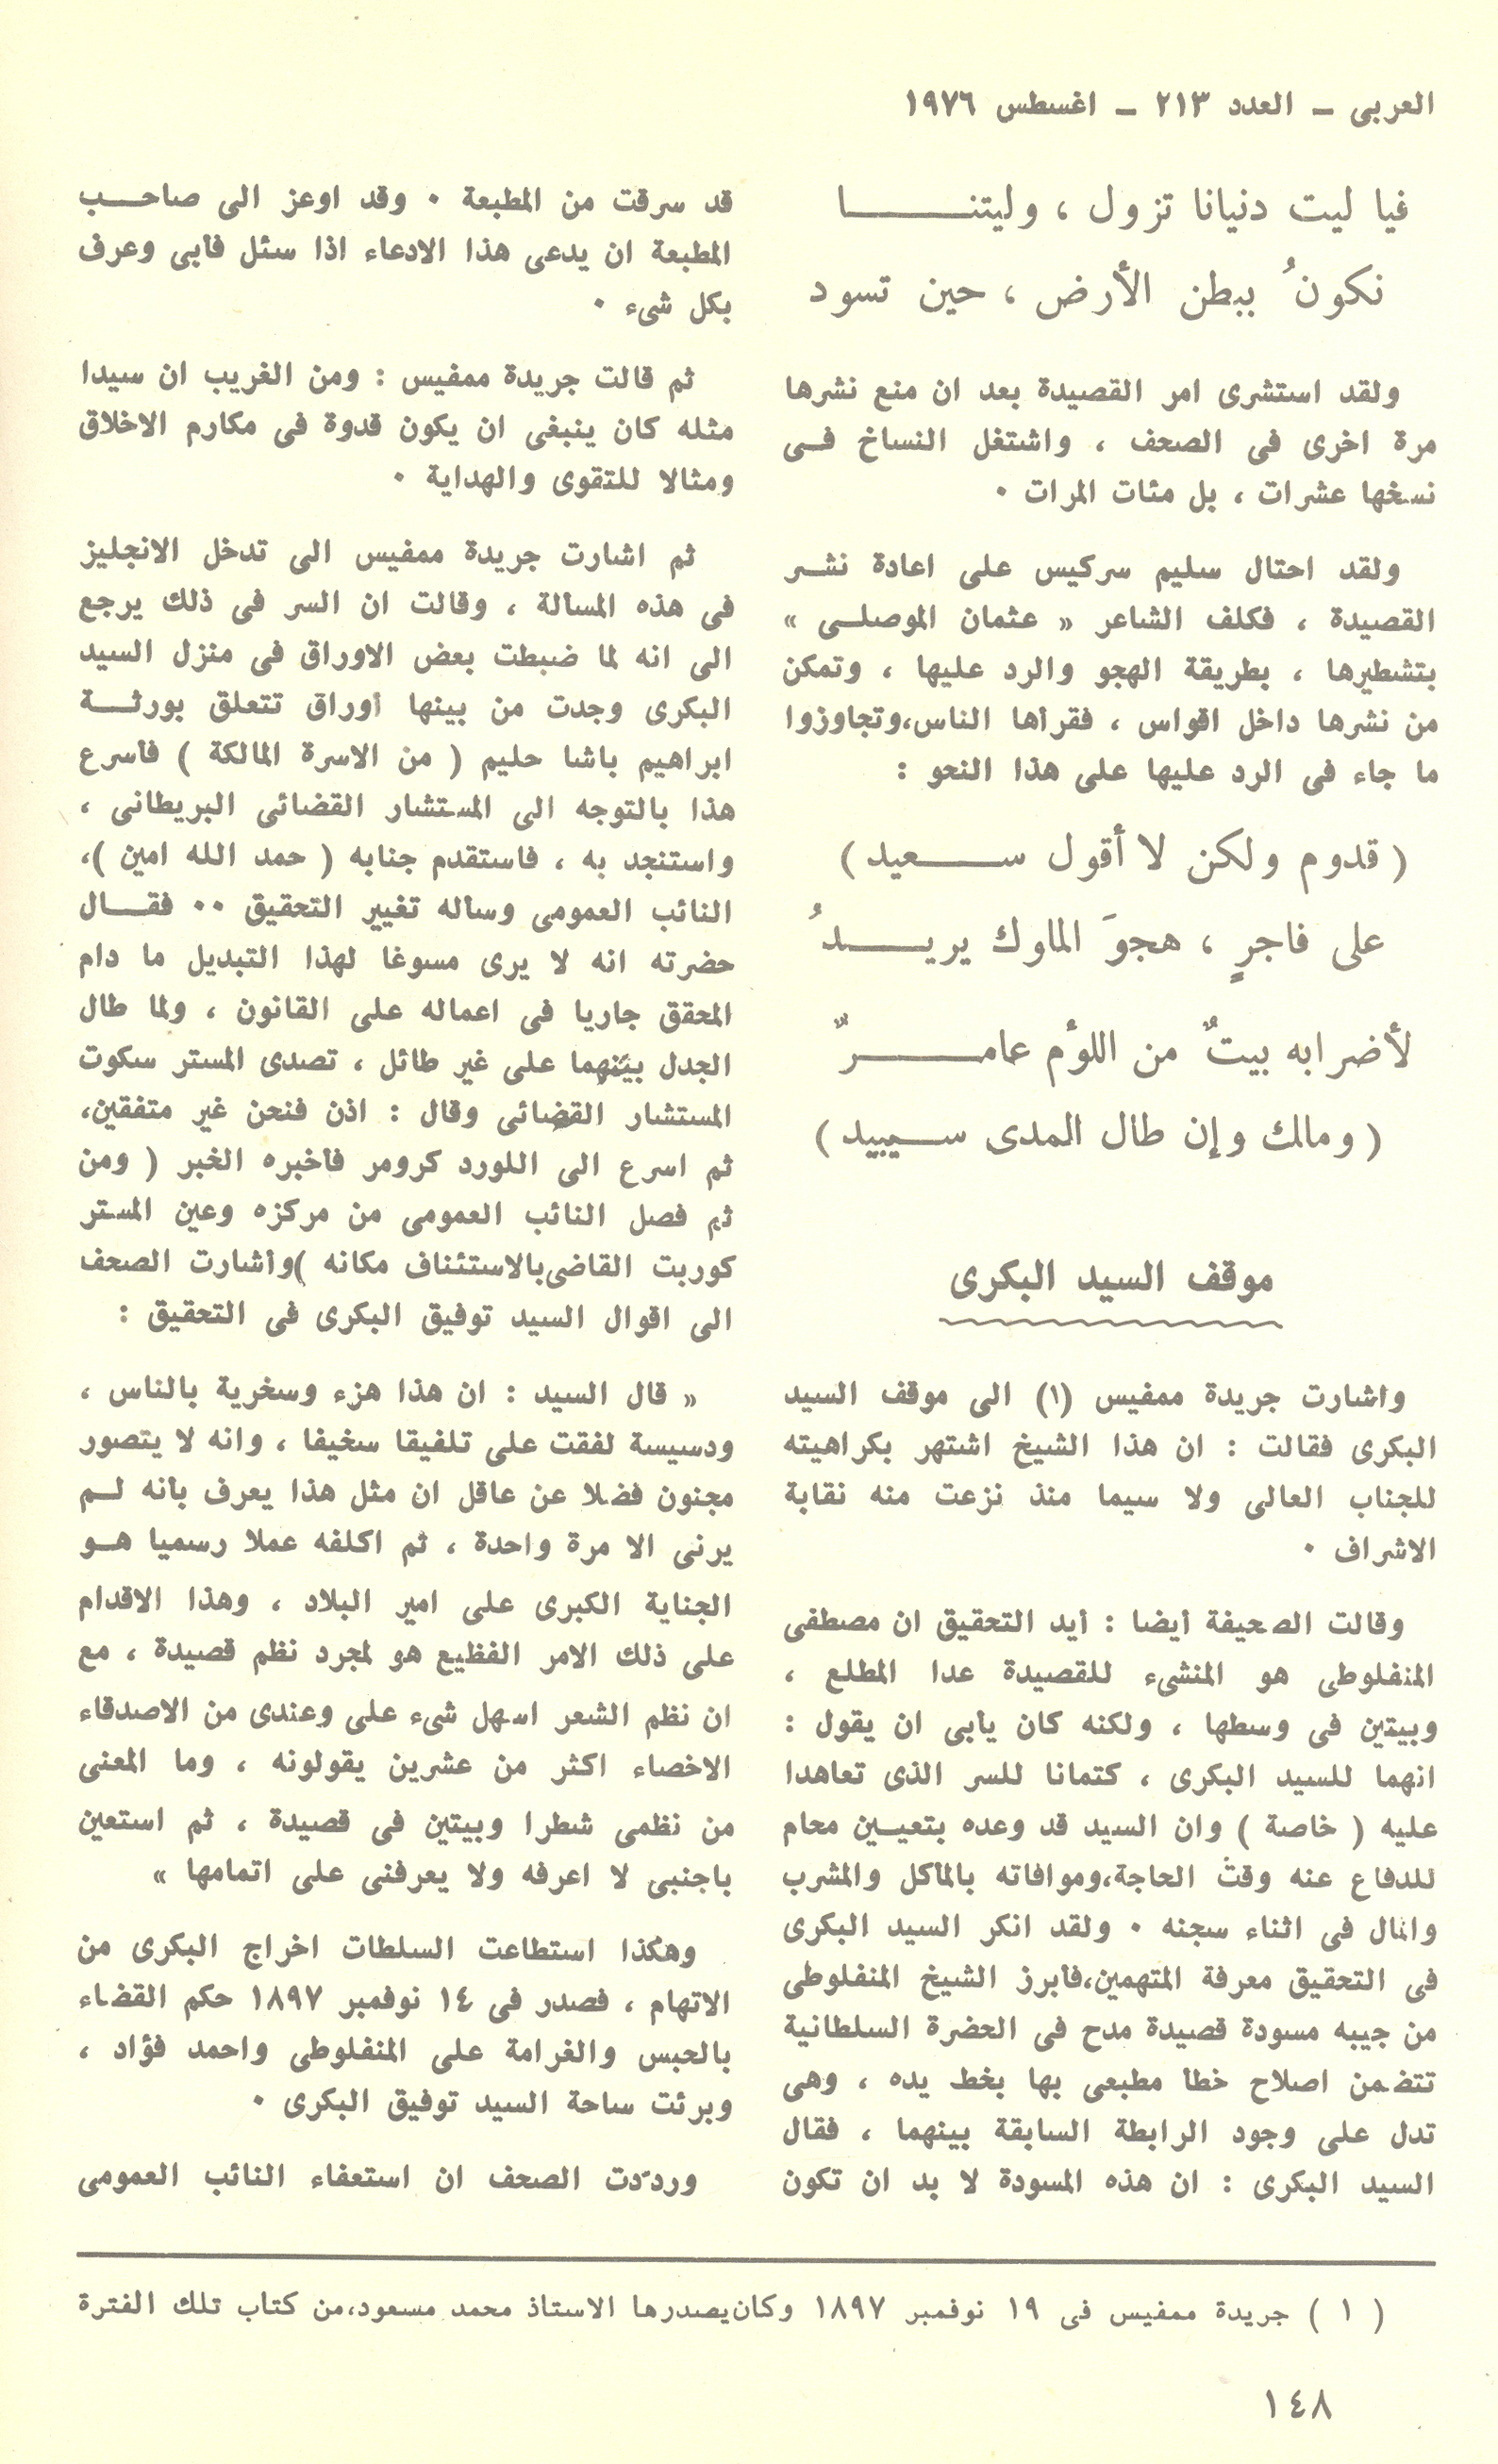 العربى ـ العدد ٢١٣ ـ اغسطس ١٩٧٦
فيا ليت دنيانا تزول ، وليتنا
نكونُ ببطن الأرض ، حين تسود
ولقد استشرى امر القصيدة بعد ان منع نشرها
مرة اخرى فى الصحف ، واشتغل النساخ فى
نسخها عشرات ، بل مئات المرات ٠
ولقد احتال سليم سركيس على اعادة نشر
القصيدة ، فكلف الشاعر « عثمان الموصلى »
بتشطيرها ، بطريقة الهجو والرد عليها ، وتمكن
من نشرها داخل اقواس ، فقرأها الناس،وتجاوزوا
ما جاء فى الرد عليها على هذا النحو :
( قدوم ولكن لا أقول سعيد )
على فاجرٍ ، هجوَ الملوك يريدُ
لأضرابه بيتٌ من اللؤم عامرٌ
( ومالك وإن طال المدى سيبيد )
موقف السيد البكرى
واشارت جريدة ممفيس (١) الى موقف السيد
البكرى فقالت : ان هذا الشيخ اشتهر بكراهيته
للجناب العالى ولا سيما منذ نزعت منه نقابة
الاشراف ٠
وقالت الصحيفة أيضا : أيد التحقيق ان مصطفى
المنفلوطى هو المنشىء للقصيدة عدا المطلع ،
وبيتين فى وسطها ، ولكنه كان يأبى ان يقول :
انهما للسيد البكرى ، كتمانا للسر الذى تعاهدا
عليه ( خاصة ) وان السيد قد وعده بتعيين محام
للدفاع عنه وقت الحاجة،وموافاته بالمأكل والمشرب
والمال فى اثناء سجنه ٠ ولقد انكر السيد البكرى
فى التحقيق معرفة المتهمين،فأبرز الشيخ المنفلوطى
من جيبه مسودة قصيدة مدح فى الحضرة السلطانية
تتضمن اصلاح خطأ مطبعى بها بخط يده ، وهى
تدل على وجود الرابطة السابقة بينهما ، فقال
السيد البكرى : ان هذه المسودة لا بد ان تكون
قد سرقت من المطبعة ٠ وقد اوعز الى صاحب
المطبعة ان يدعى هذا الادعاء اذا سئل فأبى وعرف
بكل شىء ٠
ثم قالت جريدة ممفيس : ومن الغريب ان سيدا
مثله كان ينبغى ان يكون قدوة فى مكارم الاخلاق
ومثالا للتقوى والهداية ٠
ثم اشارت جريدة ممفيس الى تدخل الانجليز
فى هذه المسألة ، وقالت ان السر فى ذلك يرجع
الى انه لما ضبطت بعض الاوراق فى منزل السيد
البكرى وجدت من بينها أوراق تتعلق بورثة
ابراهيم باشا حليم ( من الاسرة المالكة ) فأسرع
هذا بالتوجه الى المستشار القضائى البريطانى ،
واستنجد به ، فاستقدم جنابه ( حمد الله امين )،
النائب العمومى وسأله تغيير التحقيق ٠٠ فقال
حضرته انه لا يرى مسوغا لهذا التبديل ما دام
المحقق جاريا فى اعماله على القانون ، ولما طال
الجدل بينهما على غير طائل ، تصدى المستر سكوت
المستشار القضائى وقال : اذن فنحن غير متفقين،
ثم اسرع الى اللورد كرومر فأخبره الخبر ( ومن
ثم فصل النائب العمومى من مركزه وعين المستر
كوربت القاضى بالاستئناف مكانه )وأشارت الصحف
الى اقوال السيد توفيق البكرى فى التحقيق :
« قال السيد : ان هذا هزء وسخرية بالناس ،
ودسيسة لفقت على تلفيقا سخيفا ، وانه لا يتصور
مجنون فضلا عن عاقل ان مثل هذا يعرف بأنه لم
يرنى الا مرة واحدة ، ثم اكلفه عملا رسميا هو
الجناية الكبرى على امير البلاد ، وهذا الاقدام
على ذلك الامر الفظيع هو لمجرد نظم قصيدة ، مع
ان نظم الشعر اسهل شىء على وعندى من الاصدقاء
الاخصاء اكثر من عشرين يقولونه ، وما المعنى
من نظمى شطرا وبيتين فى قصيدة ، ثم استعين
باجنبى لا اعرفه ولا يعرفنى على اتمامها »
وهكذا استطاعت السلطات اخراج البكرى من
الاتهام ، فصدر فى ١٤ نوفمبر ١٨٩٧ حكم القضاء
بالحبس والغرامة على المنفلوطى واحمد فؤاد ،
وبرئت ساحة السيد توفيق البكرى ٠
وردّدت الصحف ان استعفاء النائب العمومى
( ١ ) جريدة ممفيس فى ١٩ نوفمبر ١٨٩٧ وكان يصدرها الاستاذ محمد مسعود،من كتاب تلك الفترة
١٤٨